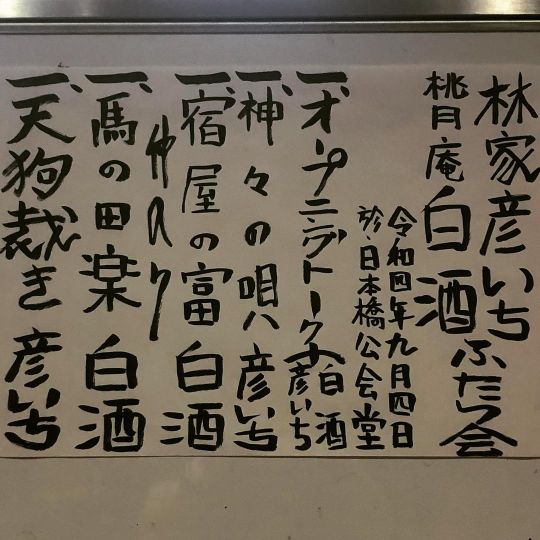 林家彦いち
桃月庵白酒
ふたり会
令和四年九月四日
於・日本橋公会堂
一、オープニングトーク 白酒 彦いち
一、神々の唄 彦いち
一、宿屋の富 白酒
仲入り
一、馬の田楽 白酒
一、天狗裁き 彦いち